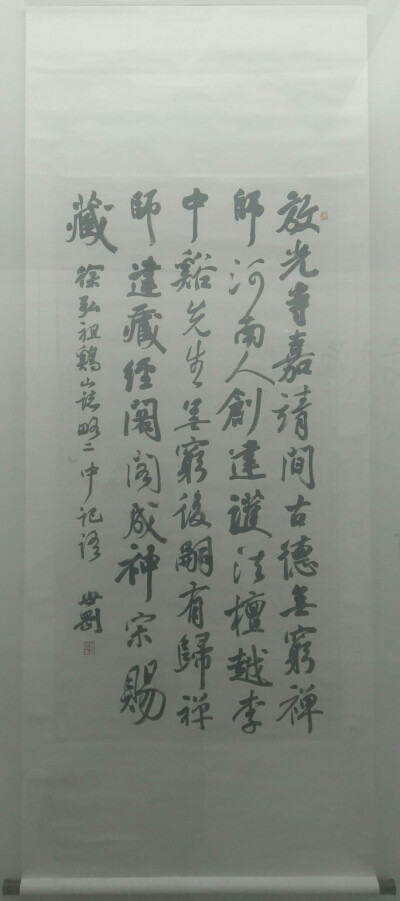 放光寺嘉靖間古德無窮禅
師河南人創建護法檀越李
中谿先生無窮後嗣有歸禅
師建藏經閣閣成神宗賜
藏
徐弘祖鷄山志略二中記語
世剛